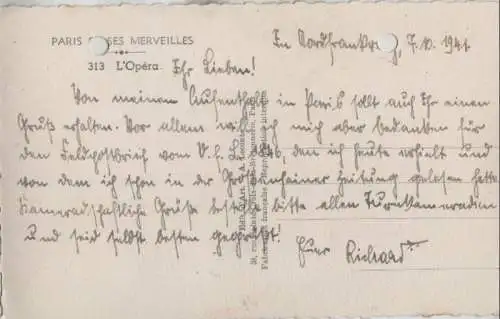 PARIS ET SES MERVEILLES
313 L'Opéra.
In Nordfrankreich, 7.10.1941
Ihr Lieben!
Von meinem Aufenthalt in Paris sollt auch Ihr einen
Gruß erhalten. Vor allem will ich mich aber bedanken für
den Feldpostbrief vom V.f.L. den ich heute erhielt und
von dem ich schon in der Zeitung gelesen hatte.
Kameradschaftliche Grüße bestellt bitte allen Turnkameraden
und seid selbst bestens gegrüßt! Euer Richard